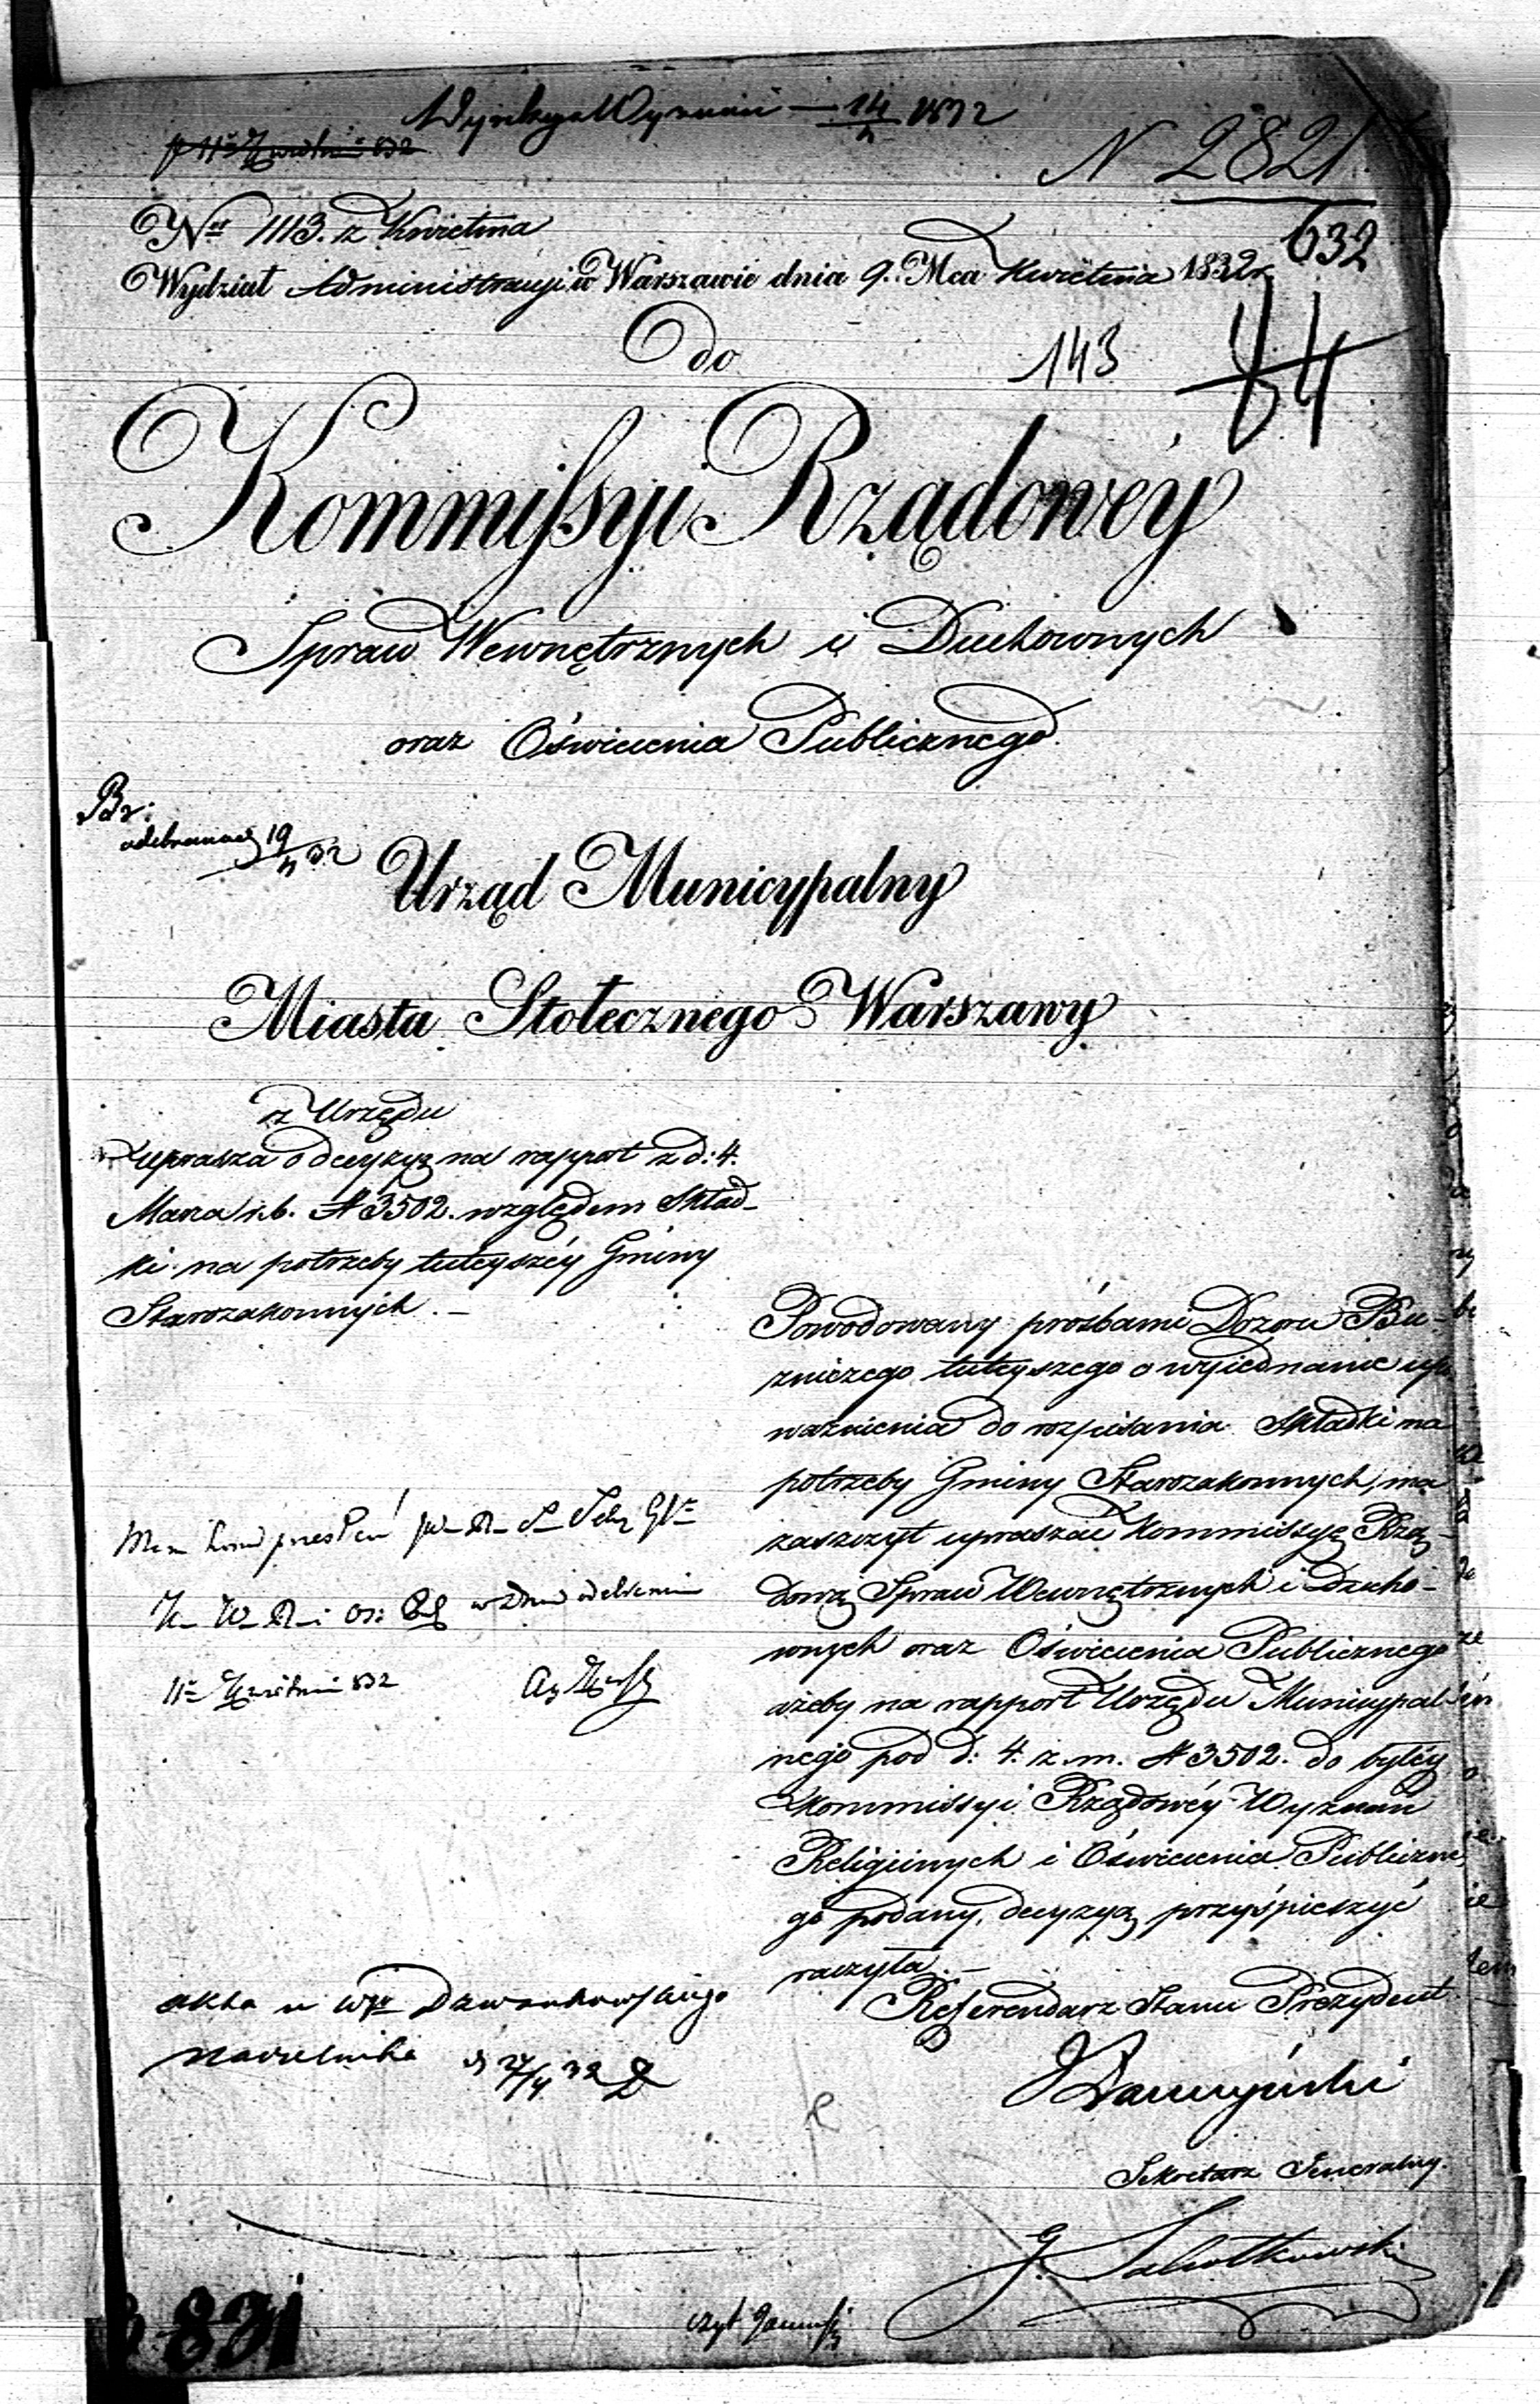 14/4 1832
N 2821
N<sup>o</sup> 1113. z Kwietnia
632
Wydział Administracyi w Warszawie dnia 9. Mca Kwietnia 1832 r.
Do
143
84
Kommissyi Rządowéy
Spraw Wewnętrznych i Duchownych
oraz Oświecenia Publicznego.
Br:
odebrana d 19/4 32
Urząd Municypalny
Miasta Stołecznego Warszawy
z Urzędu
Uprasza o decyzyą na rapport z d: 4.
Marca r.b. N 3502. względem Skład-
ki na potrzeby tuteyszéy Gminy
Starozakonnych. –
Powodowany prośbami Dozoru Bu-
źniczego tuteyszego o wyiednanie upo
ważnienia do rozpisania Składki na
potrzeby Gminy Starozakonnych, ma
zaszczyt upraszać Kommissyę Rzą-
dową Spraw Wewnętrznych i Ducho-
wnych oraz Oświecenia Publicznego
ażeby na rapport Urzędu Municypal-
nego pod d: 4. z. m. N 3502. do byłéy
Kommissyi Rządowéy Wyznań
Religiinych i Oświecenia Publiczne
go podany, decyzyą przyśpieszyć
raczyła. –
11 Kwietnia 832
akta u
Naczelnika d 27/4 32
Referendarz Stanu Prezydent
Sekretarz Jeneralny.
czyt